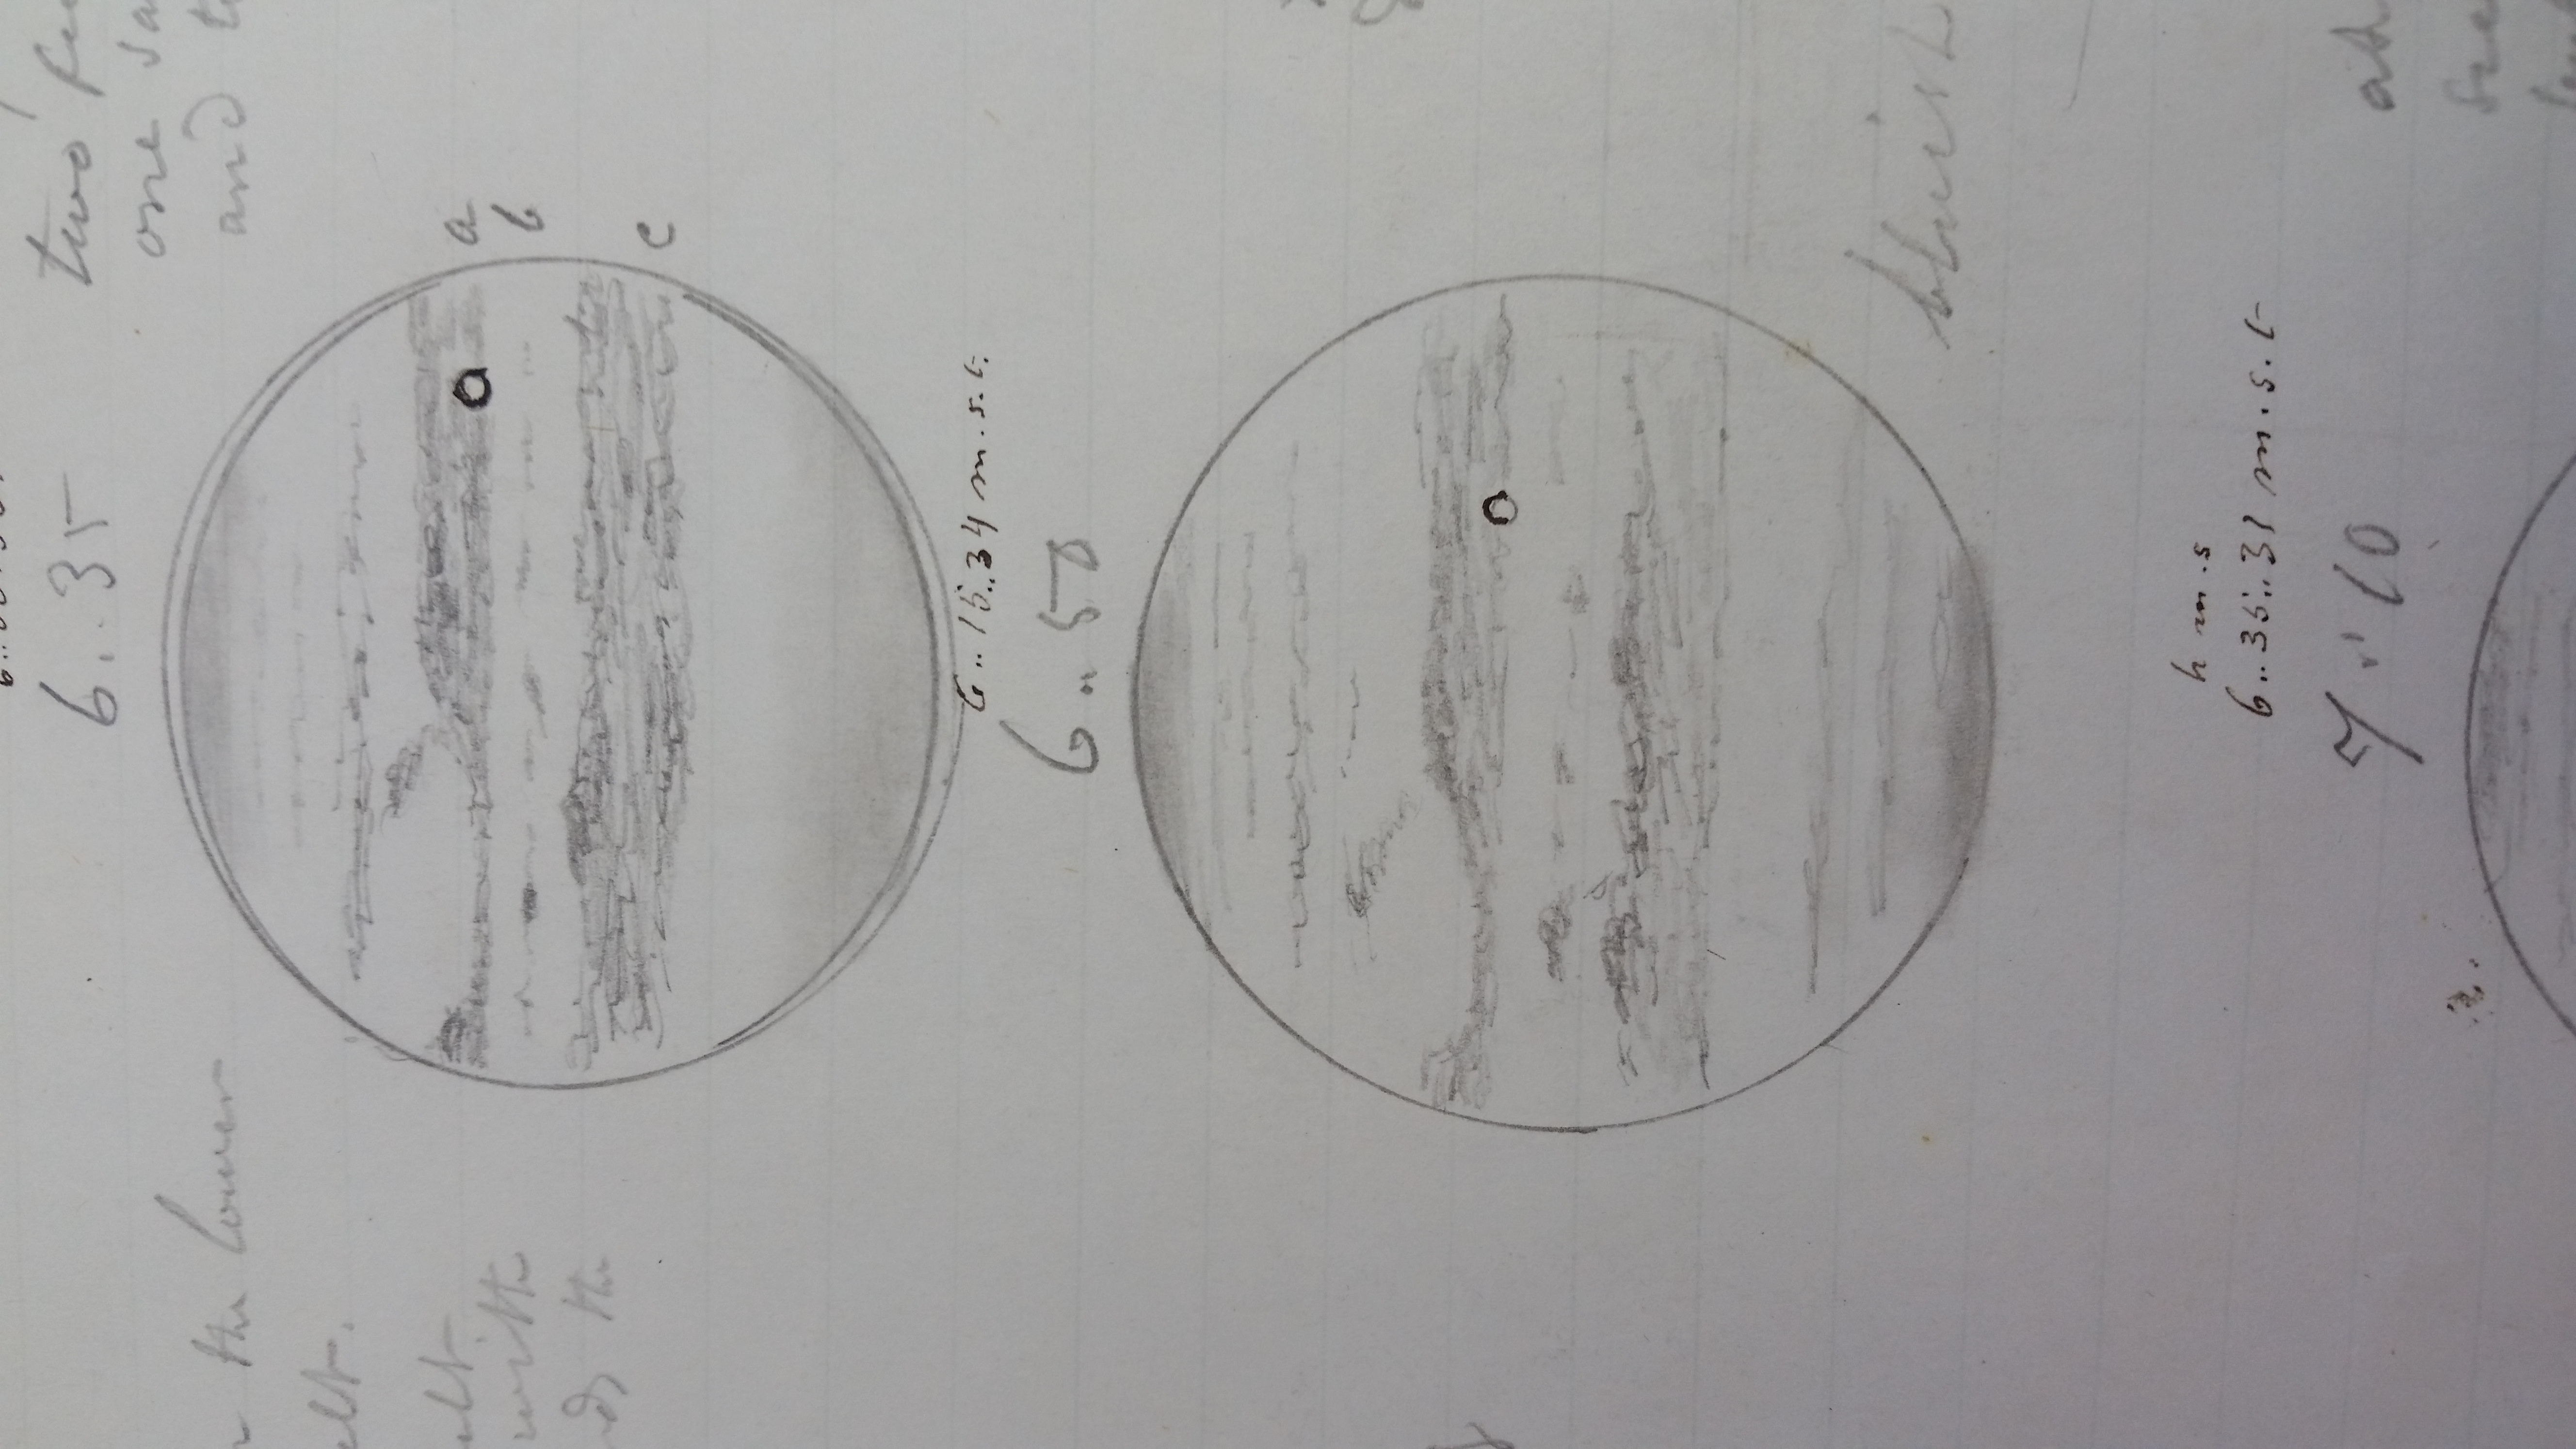 6..35
two
one
and
the lower
elt.
a
elt
with
b
the
c
6..15..34 m.s.t.
6..50
bluish
h m.s
6..35..31 m.s.t
7..10